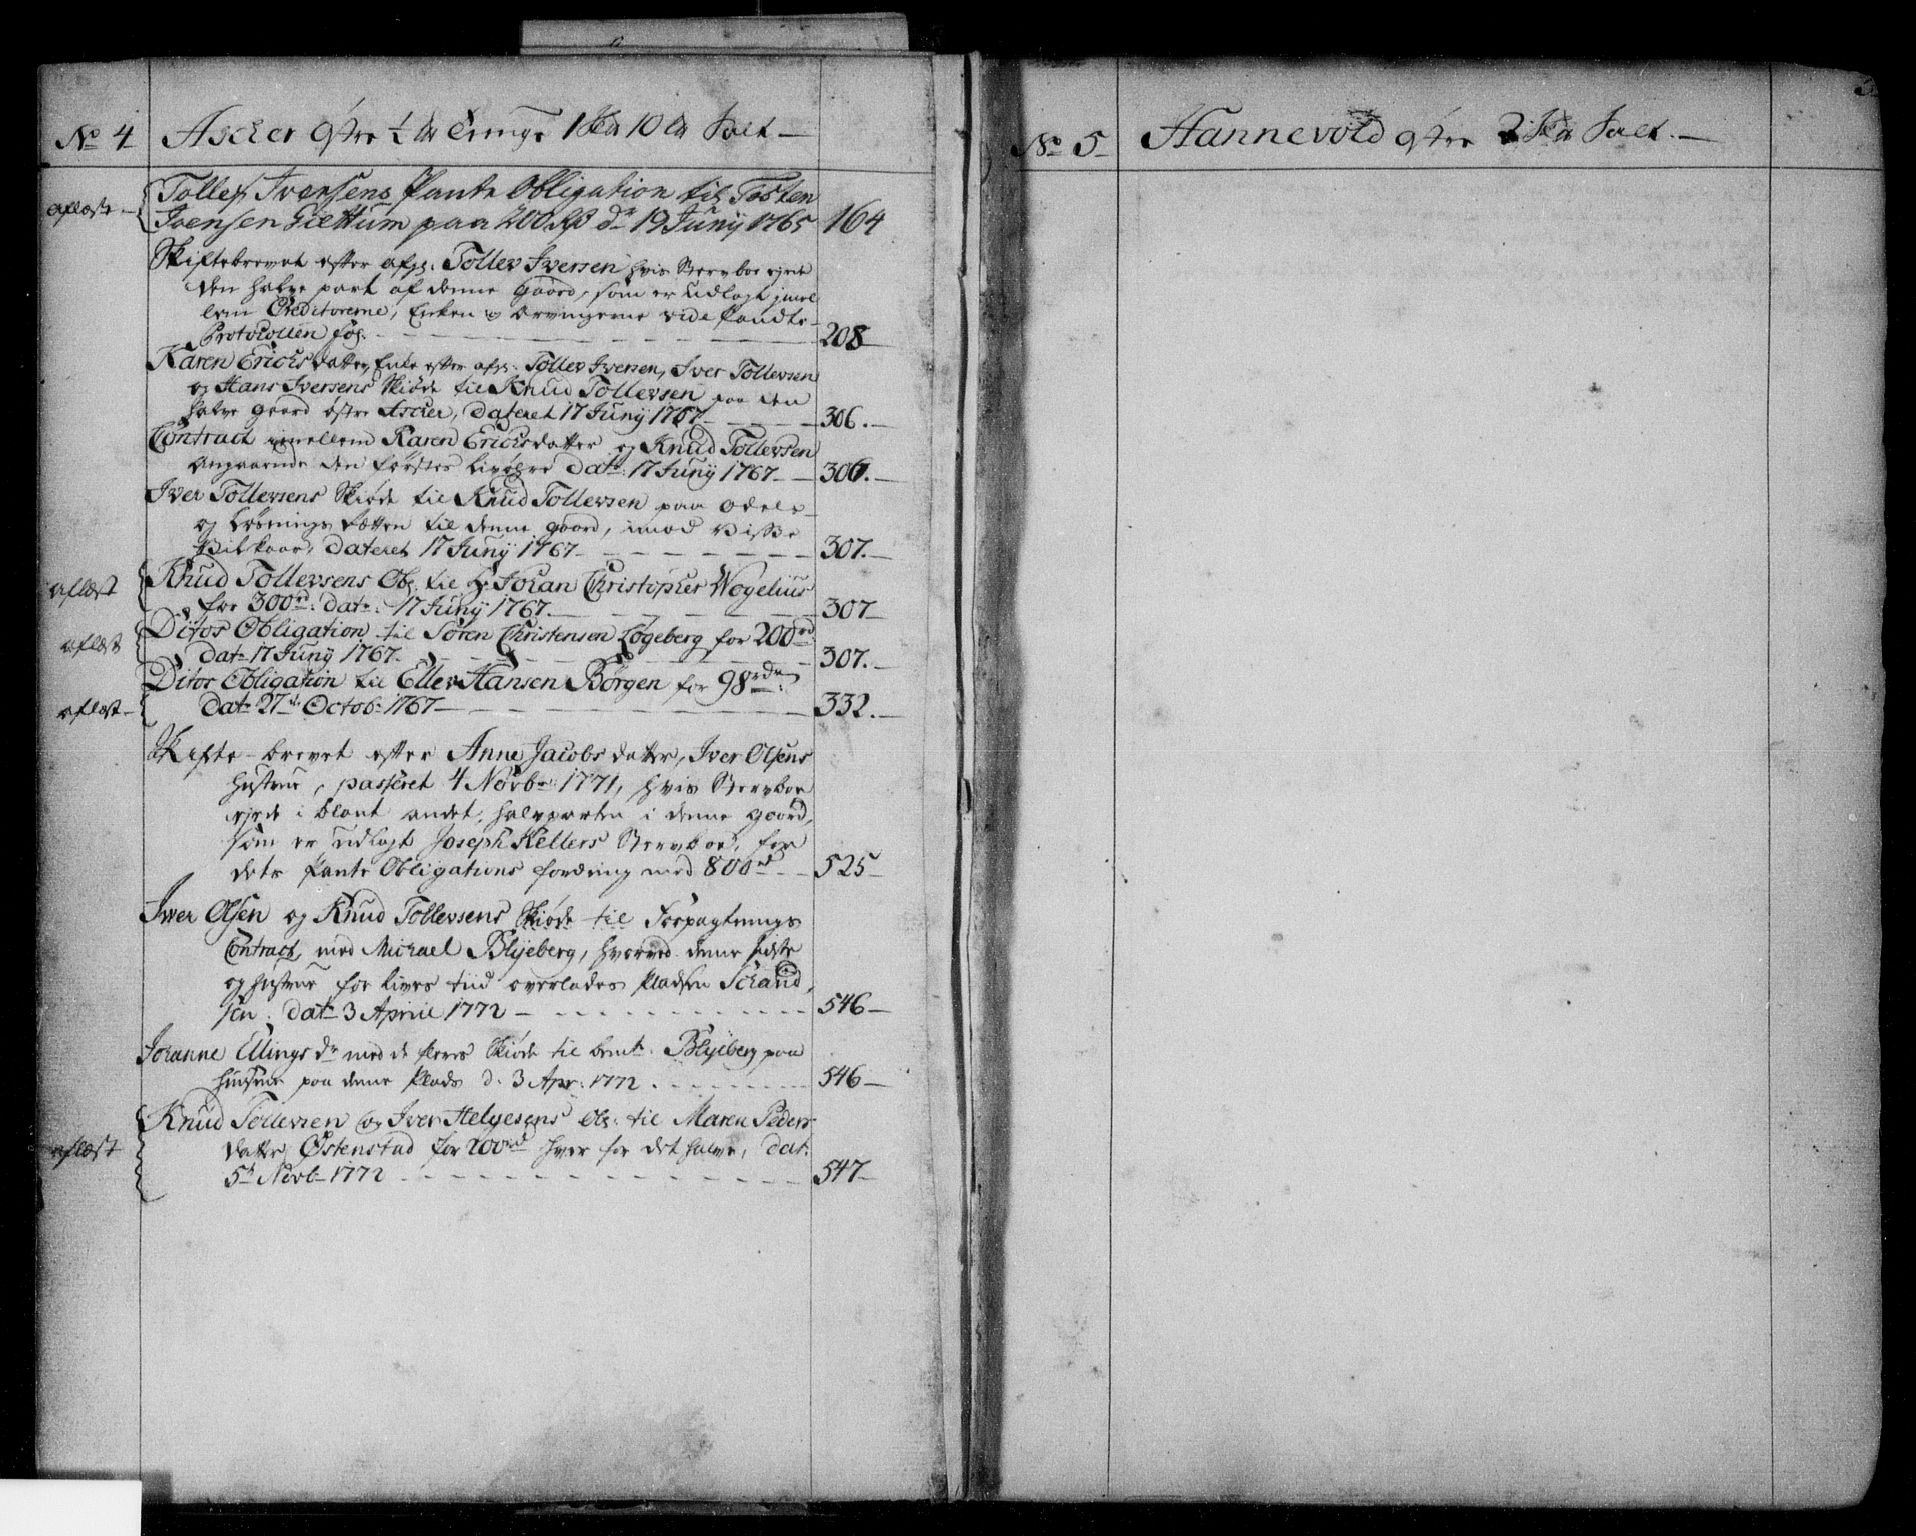 No 4 Ascher østre ½ dr Tunge 1 Sk 10 Lb Salt —
aflæst — Tollef Iversens Pante Obligation til Tosten
Iversen Giettum paa 200 Rß dr 19 Junij 1765 164
Skiftebrevet efter afg: Tollev Iversen hvis Stervboe ejede
den halve part af denne Gaard, som er udlagt imel
lem Creditorerne, Enken og Arvingerne vide Pandte
Protocollen fog. 208
Karen Erichsdatter, Enke efter afg: Tollev Iversen, Iver Tollevsen
og Hans Iversens Skiøde til Knud Tollevsen paa den
halve gaard østre Ascher, dateret 17 Junij 1767 306.
Contract imellem Karen Erichsdatter og Knud Tollevsen
angaaende den førstes Livøre dat: 17 Junij 1767 306.
Iver Tollevsens Skiøde til Knud Tollevsen paa Odels
og Løsnings Retten til denne gaard, imod visse
Vilkaar, dateret 17 Junij 1767 307.
aflæst Knud Tollevsens Ob: til Hr Johan Christopher Wogelius
for 300rd: dat: 17 Junij 1767. 307
Ditos Obligation til Søren Christensen Løgeberg for 200rd
aflæst dat 17 Junij 1767. 307.
Ditos Obligation til Ellev Hansen Børgen for 98rdr
aflæst — dat 27de Octob: 1767 332.
Skifte-brevet efter Anne Jacobsdatter, Iver Olsens
Hustrue, passeret 4 Novbr 1771, hvis Stervboe
ejede i blant andet, halvparten i denne gaard,
som er udlagt Joseph Kellers Stervboe, for
dets Pante Obligations fordring med 800rd 525
Iver Olsen og Knud Tollevsens Skiøde til Forpagtnings
Contract, med Michael Blyeberg, hvorved denne sidste
og Hustrue for Livs tiid overlades Pladsen Schand
sen: dat 3 Aprill 1772 546
Johanne Ellings dr med de fleres Skiøde til bemte: Blyeberg paa
Huusene paa denne Plads d: 3 Apr: 1772. 546
Knud Tollevsen og Iver Helgesens Ob: til Maren Peders
aflæst datter Østenstad for 200rd hver for det halve, dat:
5te Novb 1772 547
No 5 Hannevold østre 2 Sk Salt.